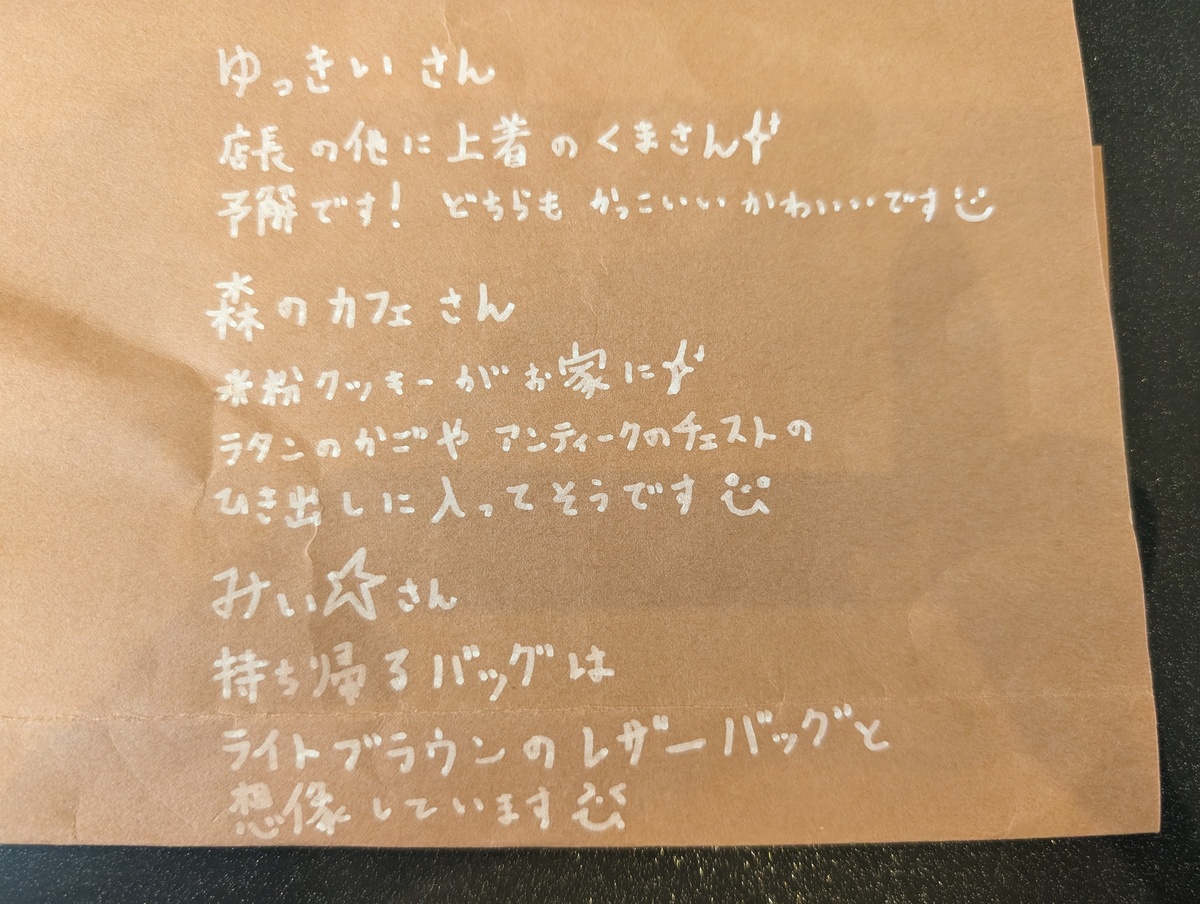 ゆっきいさん
店長の他に上着のくまさん
予解です! どちらもかっこいいかわいい・・です
森のカフェさん
米粉クッキーがお家に
ラタンのかごやアンティークのチェストの
ひき出しに入ってそうです
みい☆さん
持ち帰るバッグは
ライトブラウンのレザーバッグと
想像しています